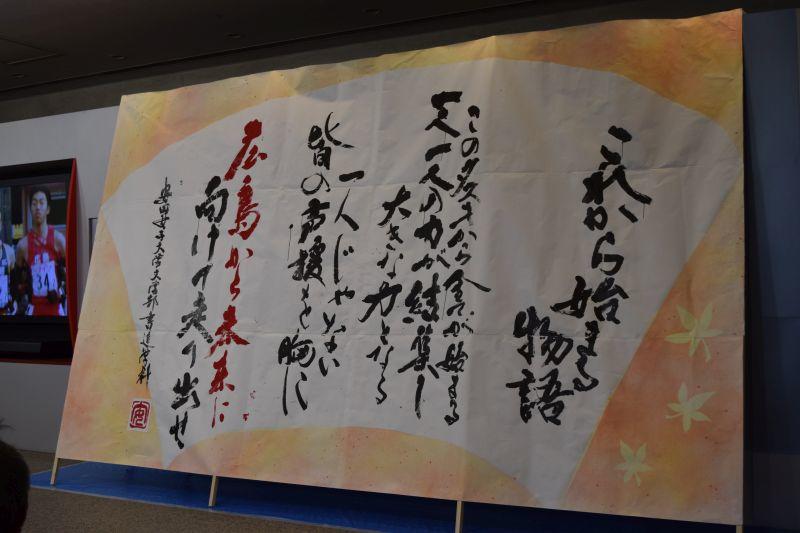 これから始まる
物語
このたすきから全てが始まる
一人一人の力が結集し
大きな力となる
一人じゃない
皆の声援を胸に
広島から未来に
向けて走り出せ
安田女子大学文学部書道学科
34